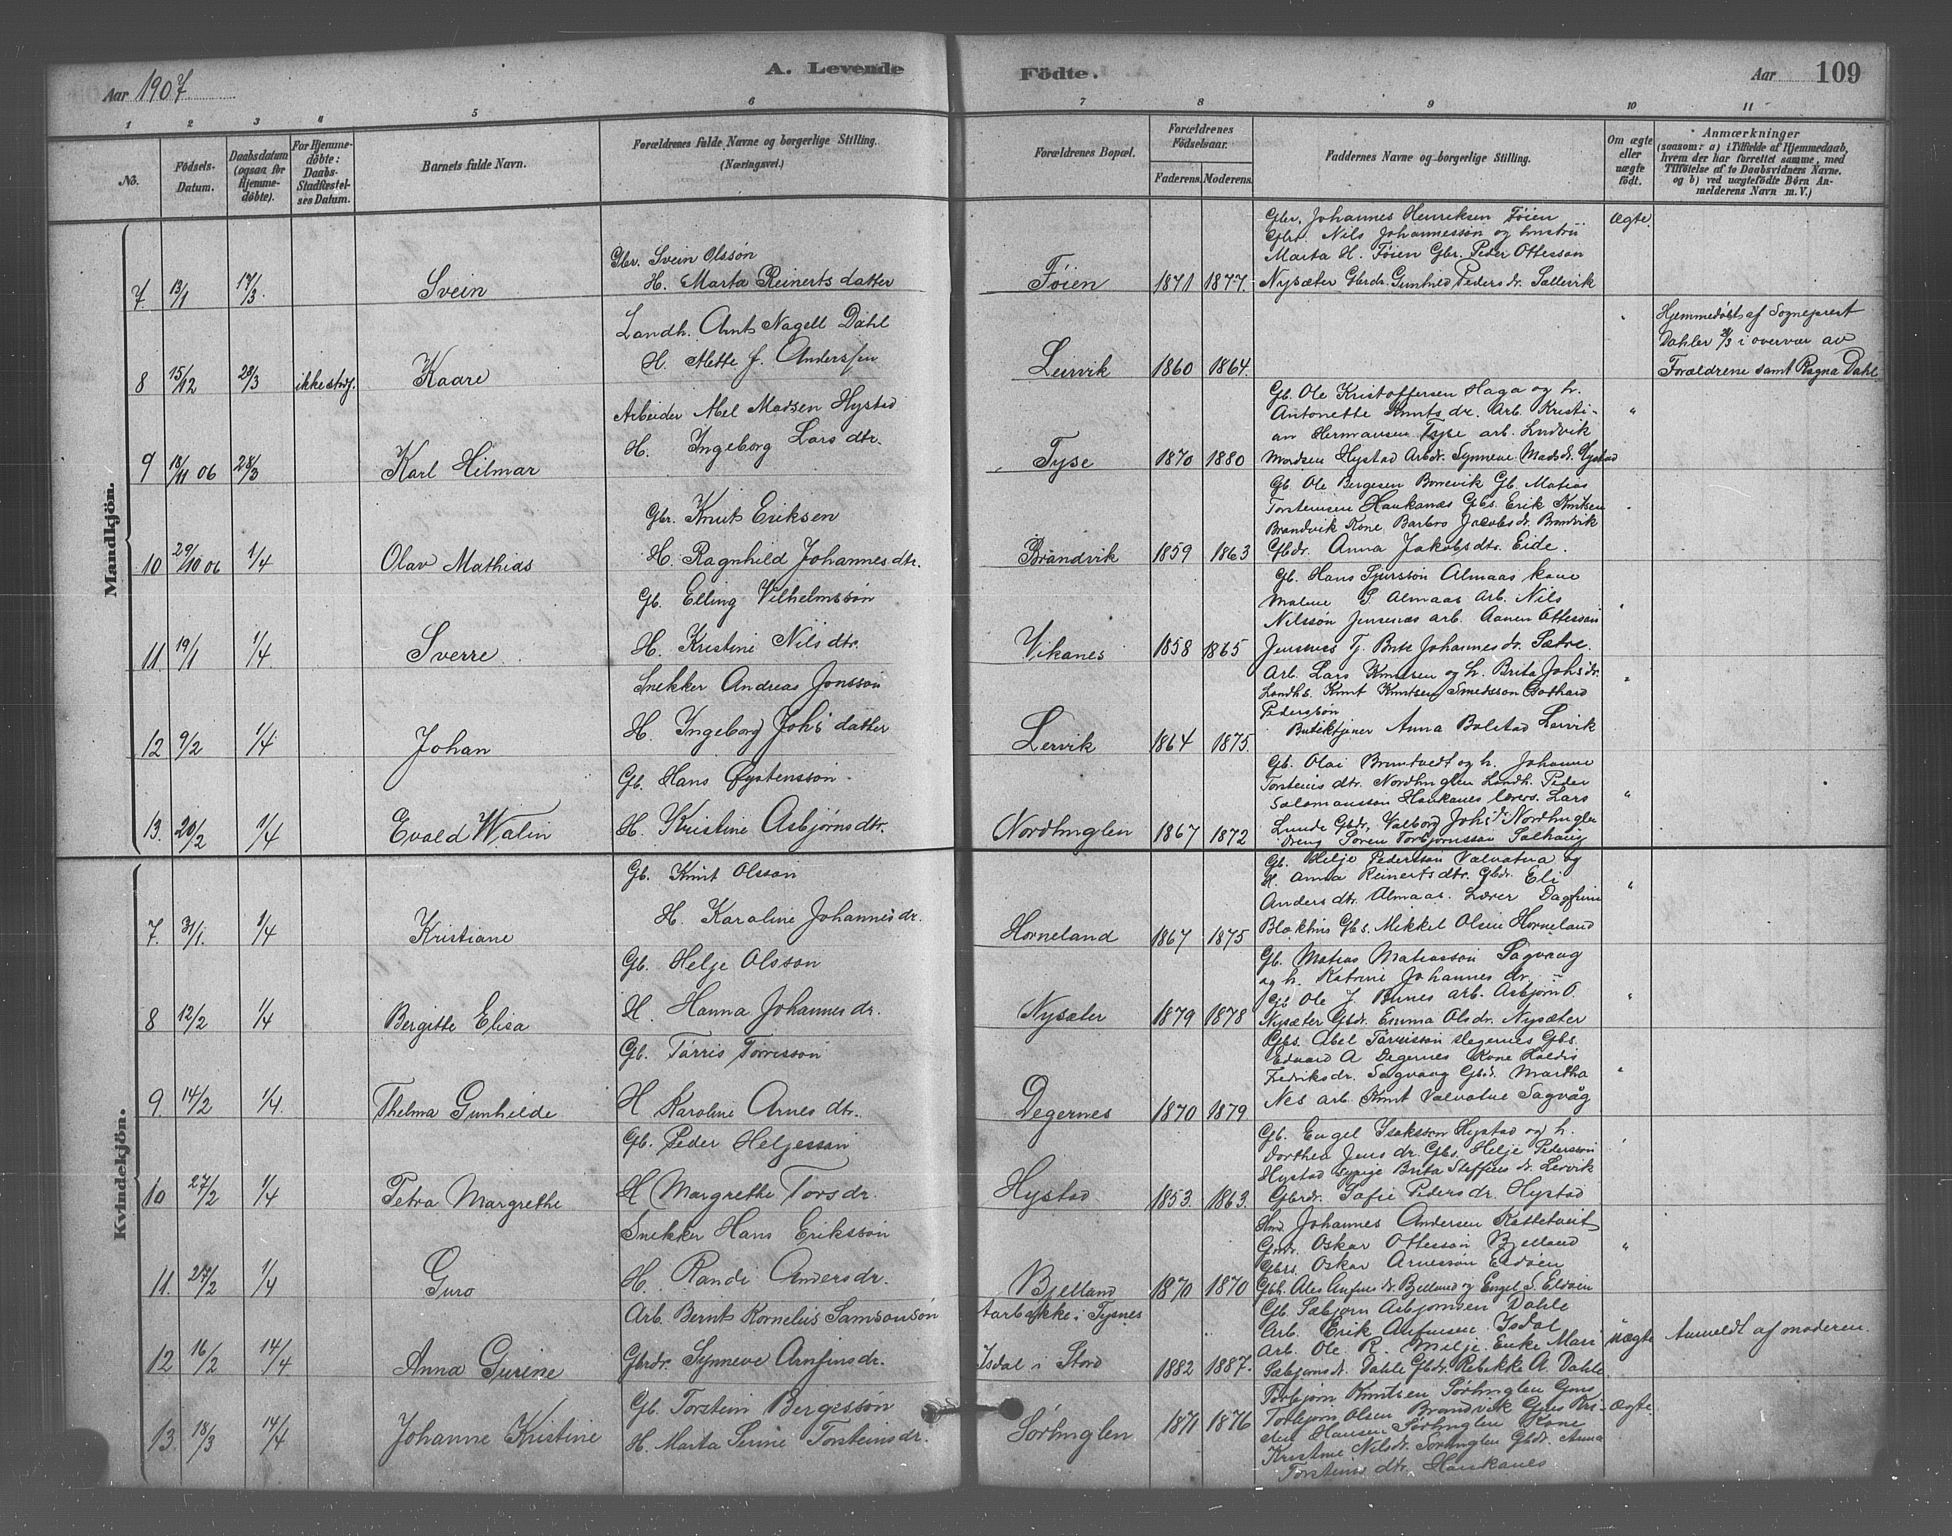 Aar 1907
A. Levende
Födte.
Aar
109
1 2 3 4 5 6 7 8 9 10 11
No.
Födsels-Datum.
Daabsdatum (ogsaa for Hjemme-döbte).
For Hjemme-döbte: Daabs-Stadfæstel-ses Datum.
Barnets fulde Navn.
Forældrenes fulde Navne og borgerlige Stilling.
(Næringsvei.)
Forældrenes Bopæl.
Forældrenes Födselsaar.
Faderens. Moderens.
Faddernes Navne og borgerlige Stilling.
Om ægte eller uægte födt.
Anmærkninger
(saasom: a) i Tilfælde af Hjemmedaab,
hvem der har forrettet samme, med
Tilföielse af to Daabsvidners Navne.
og b) ved uægtefödte Börn An-
melderens Navn m. V.)
Mandkjön.
7. 13/1 14/3. Svein
Gbr. Svein Olssön
H. Marta Reinerts datter
Föien 1871 1877.
Gbr. Johannes Henriksen Föien
Gbr. Nils Johannessön og hustru
Marta H. Föien Gbr. Peder Ottesson
Nysæter Gbrdr. Gunhild Peders dr. Sællevik
Ægte
8 15/12 28/3 ikke stadf. Kaare
Landh. Arnt Nagell Dahl
H. Mette f. Anderssen
Leirvik 1860 1864.
"
Hjemmedöbt af Sogneprest
Dahler i overvær av
Forældrene samt Ragna Dahl
9 18/11 06 28/3 Karl Hilmar
Arbeider Abel Madsen Hystad
H. Ingeborg Lars dtr.
Tyse 1870 1880
Gb. Ole Kristoffersen Haga og h.
Antonette Knuts dr. Arb. Kristi-
an Hermansen Tyse arb. Ludvik
Madsen Hystad Arbdr. Synneve Madsdr. Hystad
"
10 29/10 06 1/4 Olav Mathias
Gbr. Knut Eriksen
H. Ragnhild Johannes dtr.
Brandvik 1859 1863
Gb. Ole Bergesen Borrevik Gb. Matias
Torsteinsen Haukanes Gbs. Erik Knutsen
Brandvik Kone Barbro Jacobs dr. Brandvik
Gbdr. Anna Jakobs dtr. Eide.
"
11. 19/1 1/4 Sverre
Gb. Elling Vilhelmssön
H. Kristine Nils dtr.
Vikanes 1858 1865
Gb. Hans Sjurssön Almaas kone
Malene S. Almaas Arb. Nils
Nilssön Jensenæs arb. Aanen Ottesson
Jensenes Tj. Brite Johannes dr. Sætre.
"
12 9/2 1/4. Johan
Snekker Andreas Jonssön
H. Ingeborg Johs datter
Lervik 1864 1875.
Arb. Lars Knutsen og h. Brita Johs dr.
Landhb. Knut Knutsen Smedsson Gothard
Pederssön
Butiktjener Anna Bolstad Lervik
"
13. 20/2 1/4 Evald Walin
Gb. Hans Øystenssön
H. Kristine Asbjörns dtr.
Nordhuglen 1867 1872
Gb. Olai Bruntvedt og h. Johanne
Torsteins dtr. Nordhuglen Landh. Peder
Salamonsson Haukanes lærers. Lars
Lunde Gbdr. Valborg Johs dr Nordhuglen
Dreng Sören Torbjörnsson Solhaug
"
Kvindekjön.
7. 31/1. 1/4 Kristiane
Gb. Knut Olsson
H. Karoline Johannes dr.
Horneland 1867 1875
Gb. Helje Pedersson Valvatna og
H. Anna Reinerts dtr. Gbdr. Eli
Anders dtr. Almaas. Lærer Dagfinn
Blokhus Gbs. Mikkel Olsen Horneland
"
8 12/2 1/4 Bergitte Elisa
Gb. Helje Olsson
H. Hanna Johannes dr.
Nysæter 1879 1878
Gb. Matias Matiasson Sagvaag
og h. Katrine Johannes dr.
Gb Ole J. Bunes arb. Asbjörn O.
Nysæter Gbdr. Emma Ols dr. Nysæter
"
9. 14/2 1/4. Thelma Gunhilde
Gb. Törris Törrisson
H Karoline Arnes dtr.
Degernes 1870 1879
Gbs. Abel Törrisson Degernes Gbs.
Edvard A Degernes Kone Haldis
Fredriks dr. Sagvaag Gbdr. Martha
Nes arb. Knut Valvatne Sagvåg
"
10 27/2 1/4 Petra Margrethe
Gb. Peder Heljesson
H Margrethe Tors dr.
Hystad 1853. 1863.
Gb. Engel Isaksson Hystad og h.
Dorthea Jens dr. Gbs. Helje Pedersson
Hystad Sypige Brita Steffens dr. Lervik
Gbrdr. Sofie Peders dr. Hystad
11. 27/2 1/4 Guro
Snekker Hans Erikssön
H. Randi Anders dr.
Bjelland 1870 1870
Johannes Andersen Kattetveit
Oskar Ottesson Bjelland
Gbrs. Oskar Arnesson Eldöen
"
12 16/2 14/4 Anna Gurine
Arb. Bernt Kornelius Samsonsön
Gbrdr. Synneve Arnfins dr.
Aarbakke i Tysnes
Isdal i Stord 1882 1887.
Gb. Sæbjörn Asbjörnsen Dahle
Arb. Erik Arnfinsen Isdal
Arb. Ole R. Milje Enke Mari
Sæbjörns dr. Dahle Gbdr. Rebekke A. Dahle
uægte
Anmeldt af moderen.
13. 18/3 14/4 Johanne Kristine
Gb. Torstein Bergessön
H. Marta Serine Torsteins dr.
Sörhuglen 1871 1876
Torbjörn Knutsen Sörhuglen Gbs
Torbjörn Olsen Brandvik Gbs Kri-
sten Hansen Sörhuglen Kone
Kristine Nils dr. Sörhuglen Gbdr. Anna
Torsteins dtr. Haukanes
Ægte